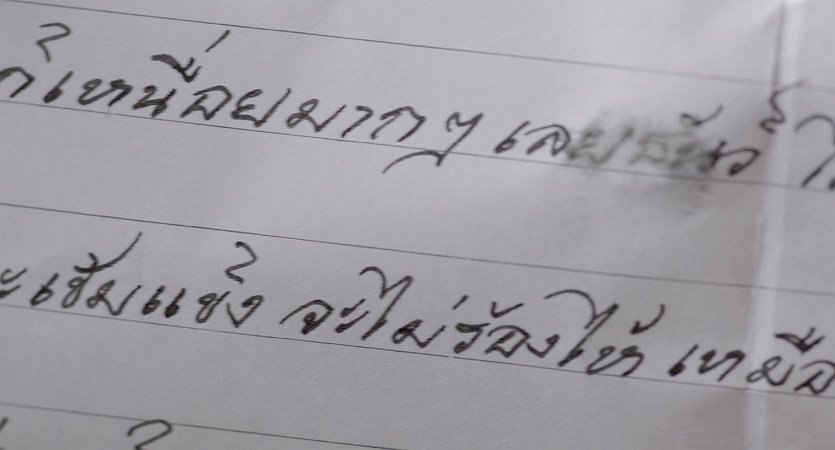 ก็เหนื่อยมากๆ เลย
ะเข้มแข็ง จะไม่ร้องไห้ เหมือ